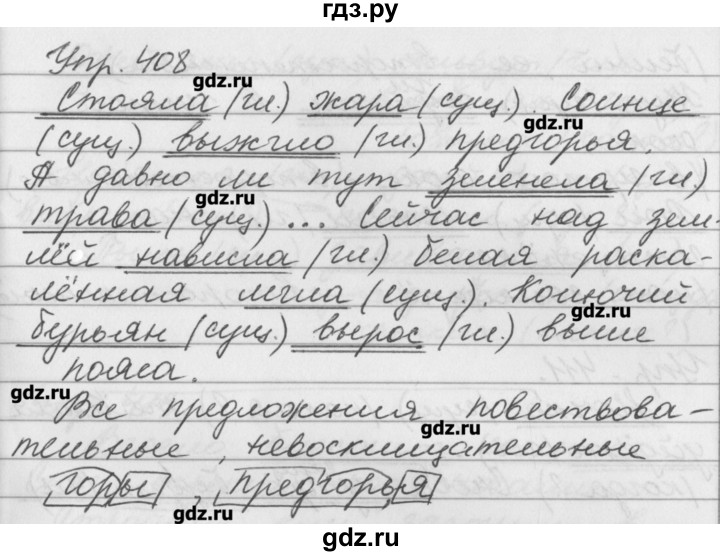 гдз.ру
Упр. 408
gdz.ru
Стояла (гл.) жара (сущ.). Солнце
gdz.ru
(сущ.) выжгло (гл.) предгорья.
А давно ли тут зеленела (гл.)
gdz.ru
трава (сущ.)... Сейчас над зем-
лёй нависла (гл.) белая раска-
лённая мгла (сущ.). Колючий
бурьян (сущ.) вырос (гл.) выше
пояса.
gdz.ru
Все предложения повествова-
gdz.ru
тельные, невосклицательные
горы, предгорья
gdz.ru
gdz.ru